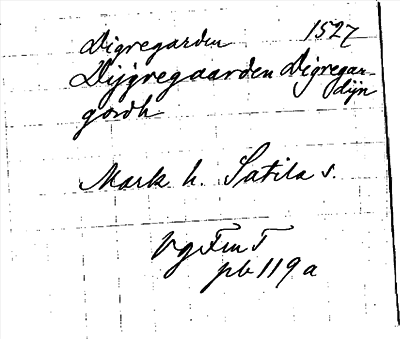 Digregarden 1527
Dijgregaarden Digregar-
dijn
gordh
Mark h. Sätila s.
Vg FmT
pb 119 a